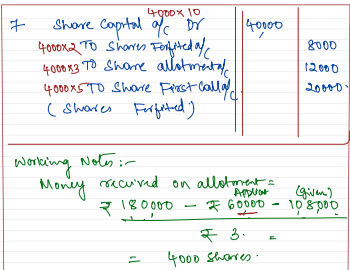 4000×10
7 Share Capital a/c Dr 40000
4000×2 To Shares Forfited a/c 8000
4000×3 To Share allotment a/c 12000
4000×5 To Share First Call a/c 20000
( Shares Forfited )
Working Notes :-
Money received on allotment =
Applicat (Given)
₹ 180000 - ₹ 60000 - 108000
₹ 3. =
= 4000 Shares.